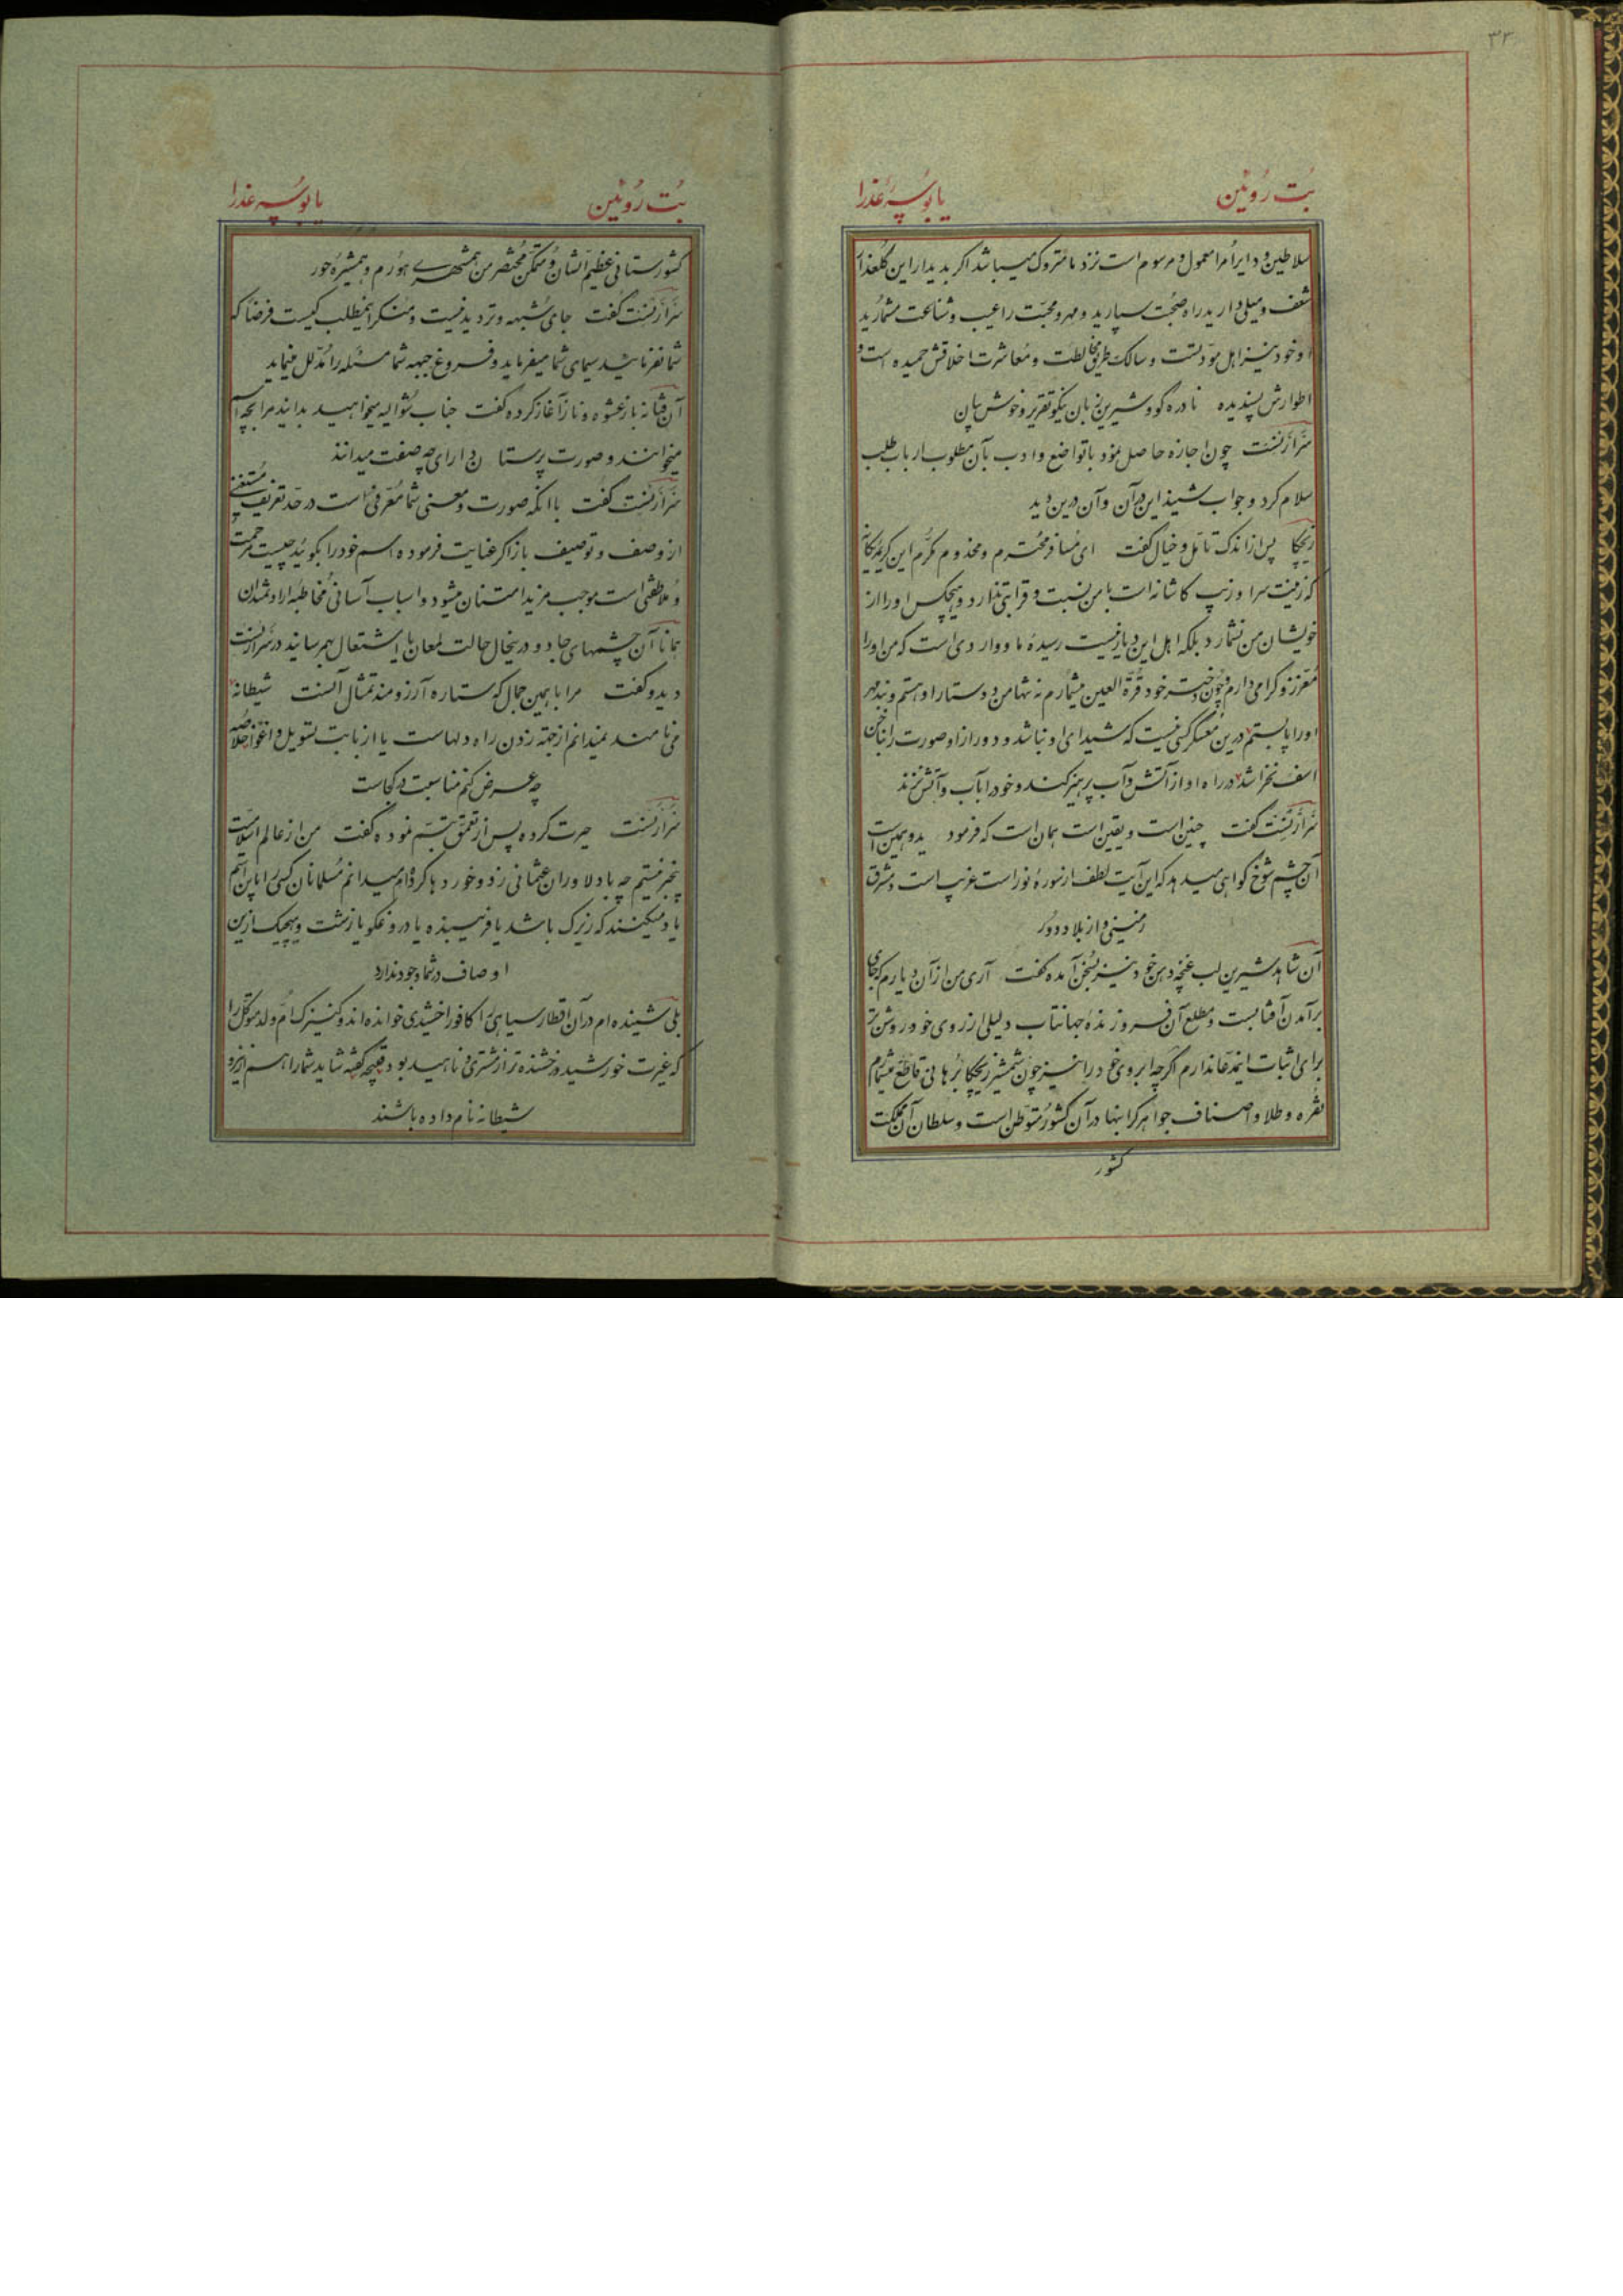 ۳۳
بُت رُوئین یا بُوسه عذرا
سلاطین و دایر امرا معمول و مرسوم است نزد ما متروک میباشد اگر بدیدار این گلعذار
شعف و میلی دارید راه صحبت سپارید و مهر و محبّت را عیب و شناعت مشمارید
او خود نیز اهل مودّتست و سالک طریق مخالطت و معاشرت اخلاقش حمیده است و
اطوارش پسندیده نادره گو و شیرین زبان نیکو تقریر و خوش بیان
چون اجازه حاصل نمود با تواضع و ادب بآن مطلوب ارباب طلب
سلام کرد و جواب شنید این در آن و آن درین دید
ریچکا پس از اندک تأمّل و خیال گفت ای مسافر محترم و مخدوم مکرّم این کریمه یگانه
که زینت سرا و زیب کاشانه است با من نسبت و قرابتی ندارد و هیچکس او را از
خویشان من نشمارد بلکه اهل این دیار نیست رسیدۀ ما و واردی است که من او را
معزّز و گرامی دارم و چون دختر خود قرّة العین میشمارم نه تنها من دوستار او هستم و بند مهر
او را پابستم درین معسکر کسی نیست که شیدای او نباشد و دور از او صورت را بناخن
اسف نخراشد در راه او از آتش و آب پرهیز کند و خود را بآب و آتش نزند
گفت چنین است و یقین است همان است که فرمودید و همین است
آن چشم شوخ گواهی میدهد که این آیت لطف از سورۀ نور است غریب است و مشرق
زمینی و از بلاد دور
آن شاهد شیرین لب غنچه دهن خود نیز بسخن آمده گفت آری من از آن دیارم که جای
برآمدن آفتابست و مطلع آن فروزندۀ جهانتاب دلیلی از روی خود روشن تر
برای اثبات این مدّعا ندارم اگرچه ابروی خود را نیز چون شمشیر ریچکا برهانی قاطع میشمارم
نقره و طلا و اصناف جواهر گرانبها در آن کشور متوطّن است و سلطان آن مملکت
کشور
بُت رُوئین یا بُوسه عذرا
کشورستانی عظیم الشان و متمکّن مختصر من همشهری هورم و همشیره حور
گفت جای شبهه و تردید نیست و منکر این مطلب کیست فرضاً که
شما نفرمائید سیمای شما میفرماید و فروغ جبهه شما مسئله را مدلّل مینماید
آن فتّانه باز عشوه و ناز آغاز کرده گفت جناب شوالیه میخواهید بدانید مرا بچه اسم
میخوانند و صورت پرستان دارای چه صفت میدانند
گفت با آنکه صورت و معنی شما معرّفی است در حدّ تعریف و مستغنی
از وصف و توصیف باز اگر عنایت فرموده اسم خود را بگوئید چیست مرحمت
و ملاطفتی است موجب مزید امتنان میشود و اسباب آسانی مخاطبه ارادتمندان
همانا آن چشمهای جادو درینحال حالت لمعان یا اشتعال بهم رسانید در
دید و گفت مرا با همین جمال که ستاره آرزومند تمثال آنست شیطانه
می نامند نمیدانم از جهة زدن راه دلهاست یا از بابت تسویل و اغوا خلاصه
چه عرض کنم مناسبت در کجاست
حیرت کرده پس از تعمّق تبسّم نموده گفت من از عالم اسلامیّت
بیخبر نیستم چه با دلاوران عثمانی زد و خوردها کرده ام میدانم مسلمانان کسی را باین اسم
یاد میکنند که زیرک باشد یا فریبنده یا دروغگو یا زشت و هیچیک ازین
اوصاف در شما وجود ندارد
بلی شنیده ام در آن اقطار سیاهی را کافور اخشیدی خوانده اند و کنیزک امّ ولد متوکّل را
که غیرت خورشید و درخشنده تر از مشتری و ناهید بود قبیحه گفته شاید شما را هم ازینرو
شیطانه نام داده باشند